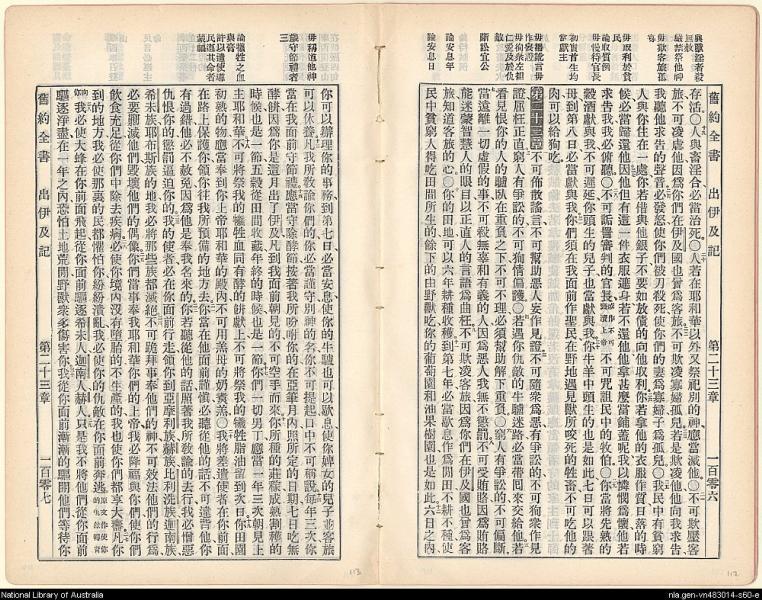 舊約全書 出伊及記 第二十三章 一百零六
存活○人與畜淫合必當治死○人若在耶和華以外又祭祀別的神應當滅他○不可欺壓客
旅不可凌虐他因爲你們在伊及國也曾爲客旅不可欺凌寡婦孤兒若是欺凌他他向我求告
我聽他求告的聲音必發怒使你們被刀殺死使你們的妻爲寡婦子爲孤兒○我民中有貧窮
人與你住在一處你若借與他銀子不要如放債的向他取利你若拿他的衣服作質日落的時
候必當歸還他因他但有這一件衣服遮身若不還他他拿甚麼當鋪蓋呢我以憐憫爲懷他若
求告我我必俯聽○不可詬詈審判的官長不可咒詛民中的牧伯○你當將先熟的
穀酒獻與我不可遲延你頭生的兒子也當獻與我你牛羊中頭生的也是如此七日可以跟著
母到第八日必當獻與我你們須在我面前作聖民在野地遇見獸所咬死的牲畜不可吃他的
肉可以給狗吃
第二十三章不可佈散謠言不可幫助惡人妄作見證不可隨衆爲惡有爭訟的不可徇衆作見
證屈枉正直窮人有爭訟的不可徇情偏護○若遇你仇敵的牛驢迷路必當帶回來交給他若
看見恨你的人的驢臥在重負之下不可不理必須幫助解下重負○窮人有爭訟的不可偏斷
當遠離一切虛假的事不可殺無辜和有義的人因爲惡人我無不懲罰不可受賄賂因爲賄賂
能迷蒙智慧人的眼目以正直人的言語爲曲枉不可欺凌客旅因爲你們在伊及國也曾爲客
旅知道客旅的心○你的田地可以六年耕種收穫到第七年必當歇息作爲閒田不耕不種使
民中貧窮人得吃田間所生的餘下的由野獸吃你的葡萄園和油果樹園也是如此六日之內
你可以辦理你的事務到第七日必當安息使你的牛驢也可以歇息使你婢女的兒子並客旅
可以休養凡我所敎諭你們的你必當謹守別神的名你不可提起口中不可稱說每年三次你
當在我面前守節禮應當守除酵節按著我所吩咐你的在亞筆月內照所定的日期七日吃無
酵餅因爲你是這月出了伊及凡到我面前朝見的不可空手而來你所種的莊稼成熟割穫的
時候也是一節五穀從田間收藏年終的時候也是一節你們一切男丁應當一年三次朝見上
主耶和華不可將祭我的犧牲血同有酵的餅獻上不可將祭我的犧牲脂油留到次日你田園
初熟的物應當奉到你上帝耶和華的殿內不可用羔羊的奶煑羔○我將差遣使者在你前面
在路上保護你領你往我所預備的地方去你當在他面前謹愼必聽從他的話不可違背他你
有過錯他必不赦免因爲他是奉我名來的你若聽從他的話照著我所敎諭的去行我必憎惡
仇恨你的懲罰逼迫你的我的使者必在你面前行走領你到亞摩利族赫族比利洗族迦南族
希未族耶布斯族的地我必將那些族都滅絕不可跪拜事奉他們的神不可效法他們的行爲
必要剿滅他們毀壞他們的偶像你們當事奉耶和華你們的上帝我必降福與你們使你們
飲食充足從你們中除去疾病必使你境內沒有墮胎的不生產的我也使你們都享大壽凡你
到的地方我必使那裏的民都懼怕你紛紛潰亂我必使你的仇敵在你面前奔逃
我必使大蜂在你前面飛起從你面前驅逐希未人迦南人赫人只是我不將他們從你面前
驅逐淨盡在一年之內恐怕土地荒開野獸衆多傷害你我從你面前漸漸的驅開他們等待你
舊約全書 出伊及記 第二十三章 一百零七
113
112
National Library of Australia
nla.gen-vn483014-s60-e